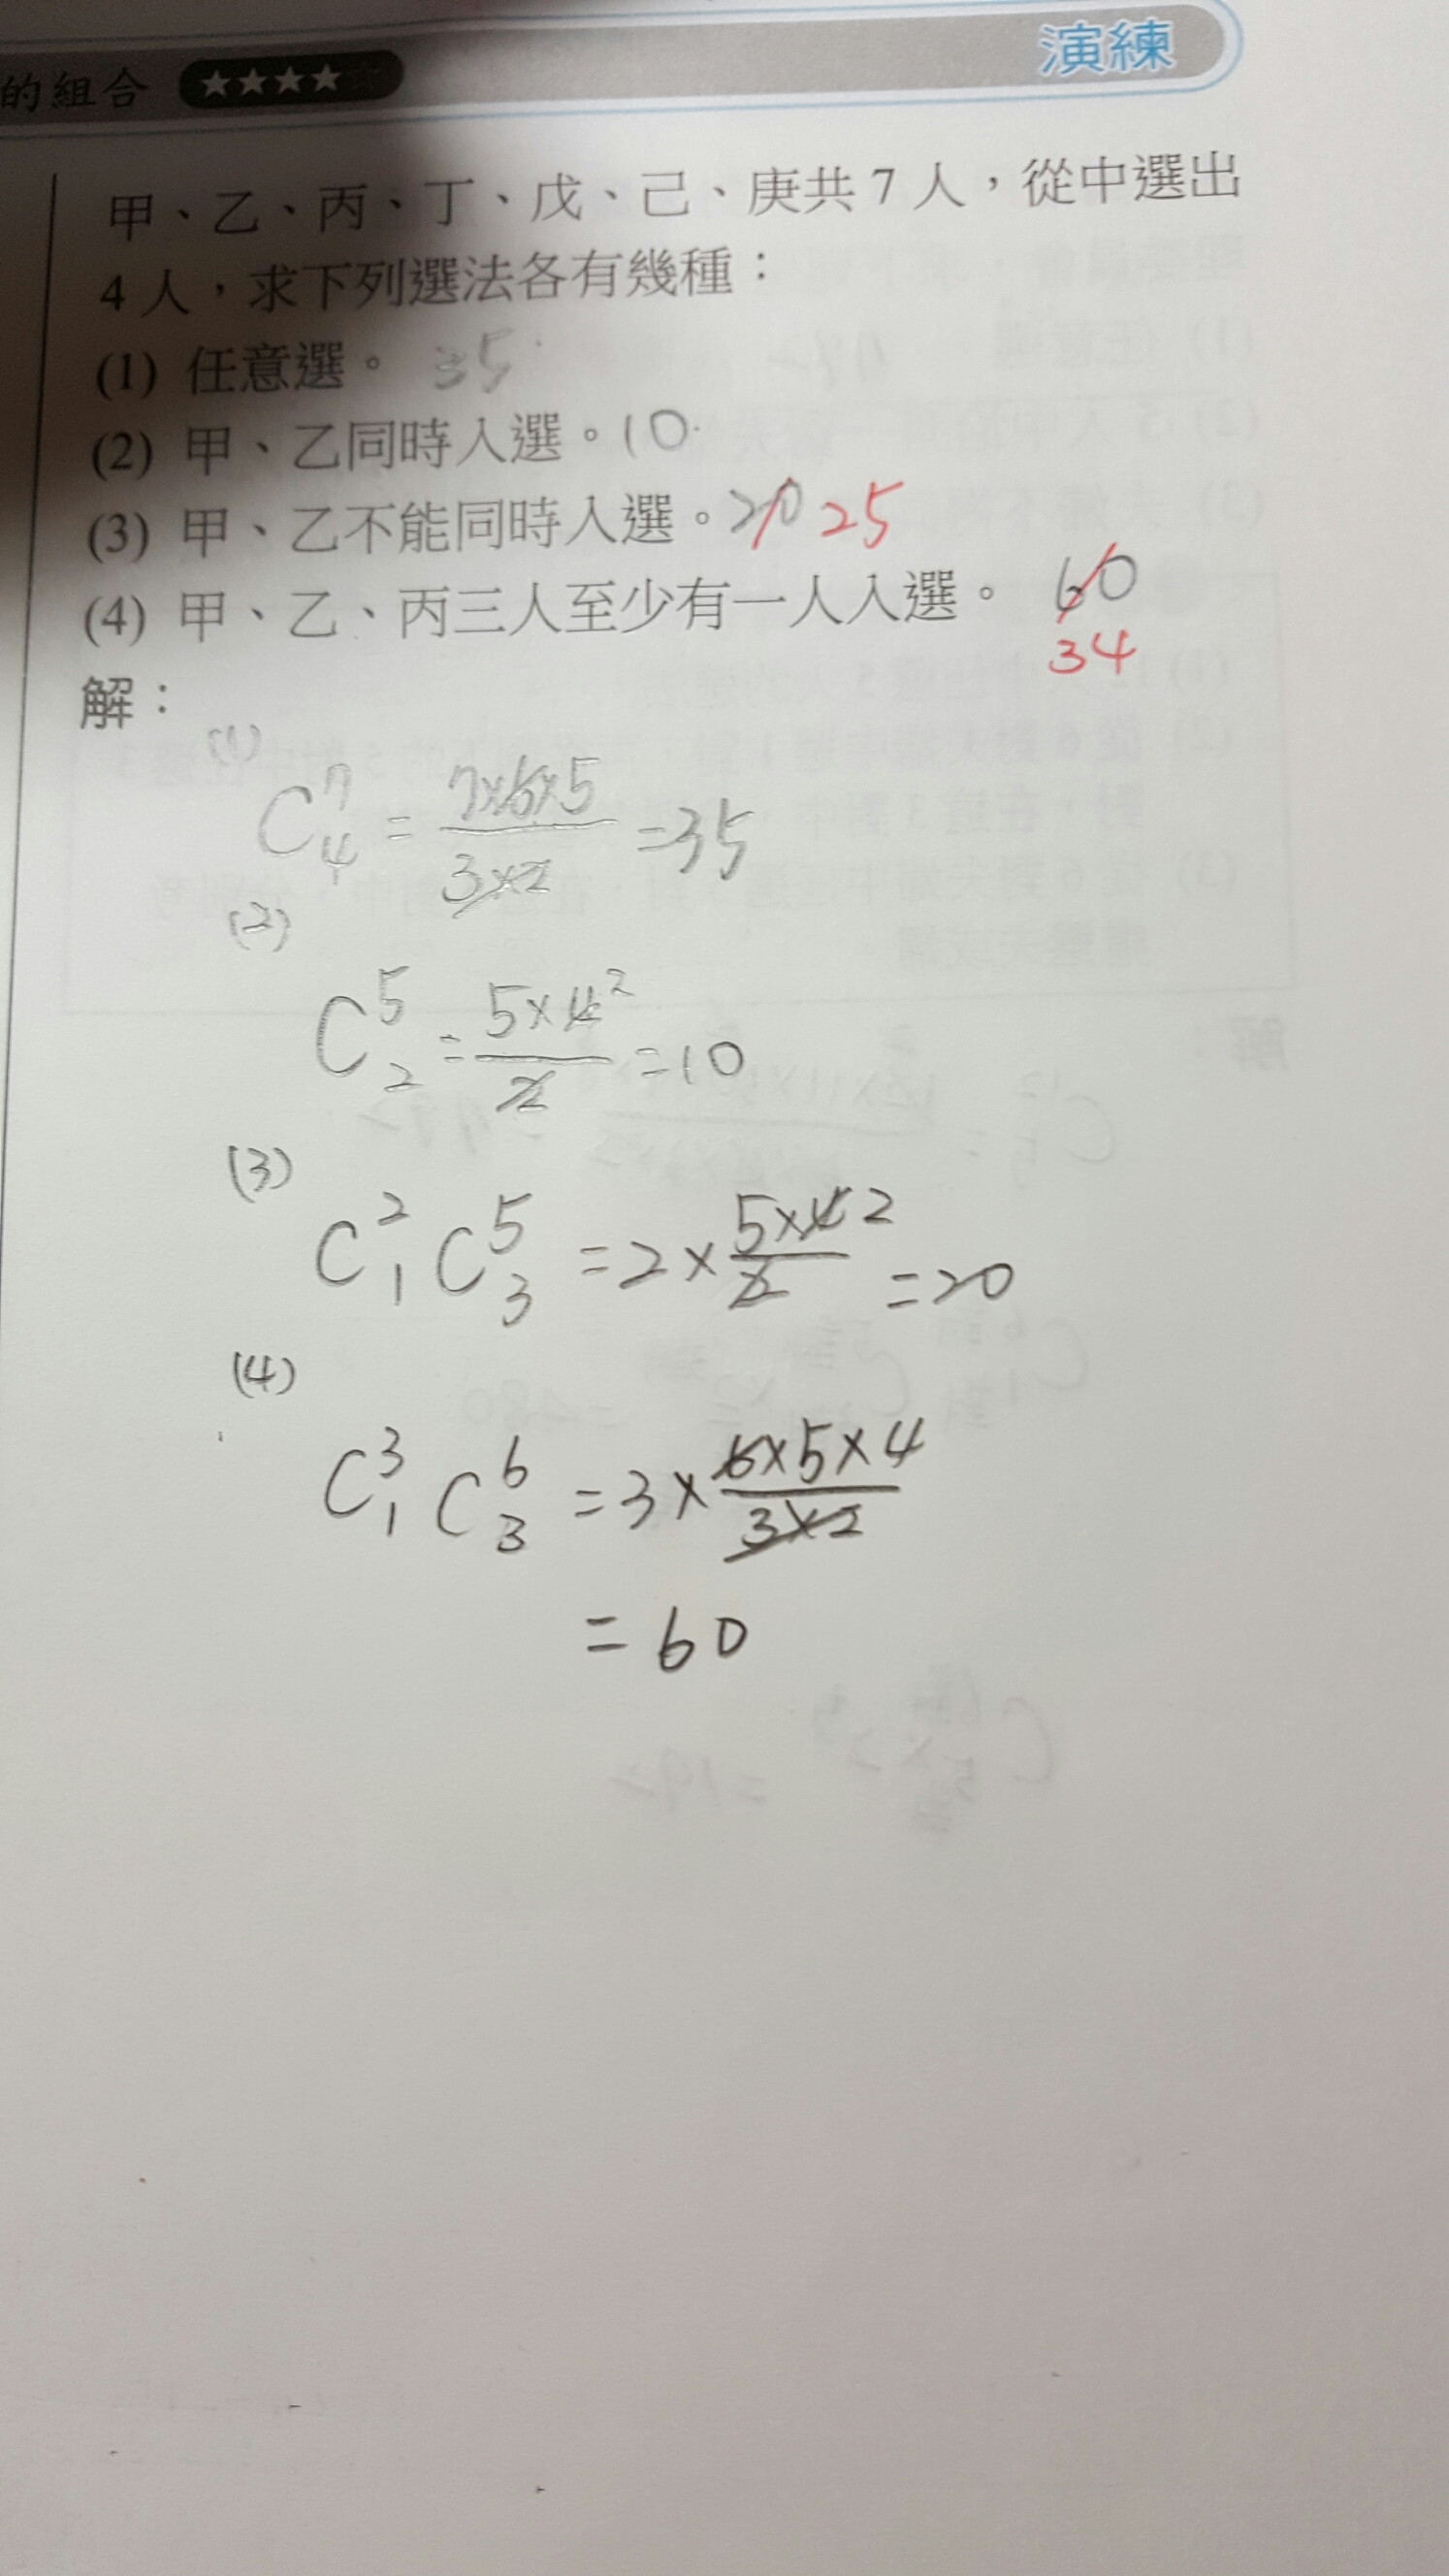 的組合 ★★★★☆
演練
甲、乙、丙、丁、戊、己、庚共 7 人，從中選出
4 人，求下列選法各有幾種：
(1) 任意選。 35
(2) 甲、乙同時入選。10
(3) 甲、乙不能同時入選。20 25
(4) 甲、乙、丙三人至少有一人入選。 60
34
解：
(1)
C⁷₄ = 7×6×5 / 3×2 = 35
(2)
C⁵₂ = 5×4 2 / 2 = 10
(3)
C²₁ C⁵₃ = 2 × 5×4 2 / 2 = 20
(4)
C³₁ C⁶₃ = 3 × 6×5×4 / 3×2
= 60